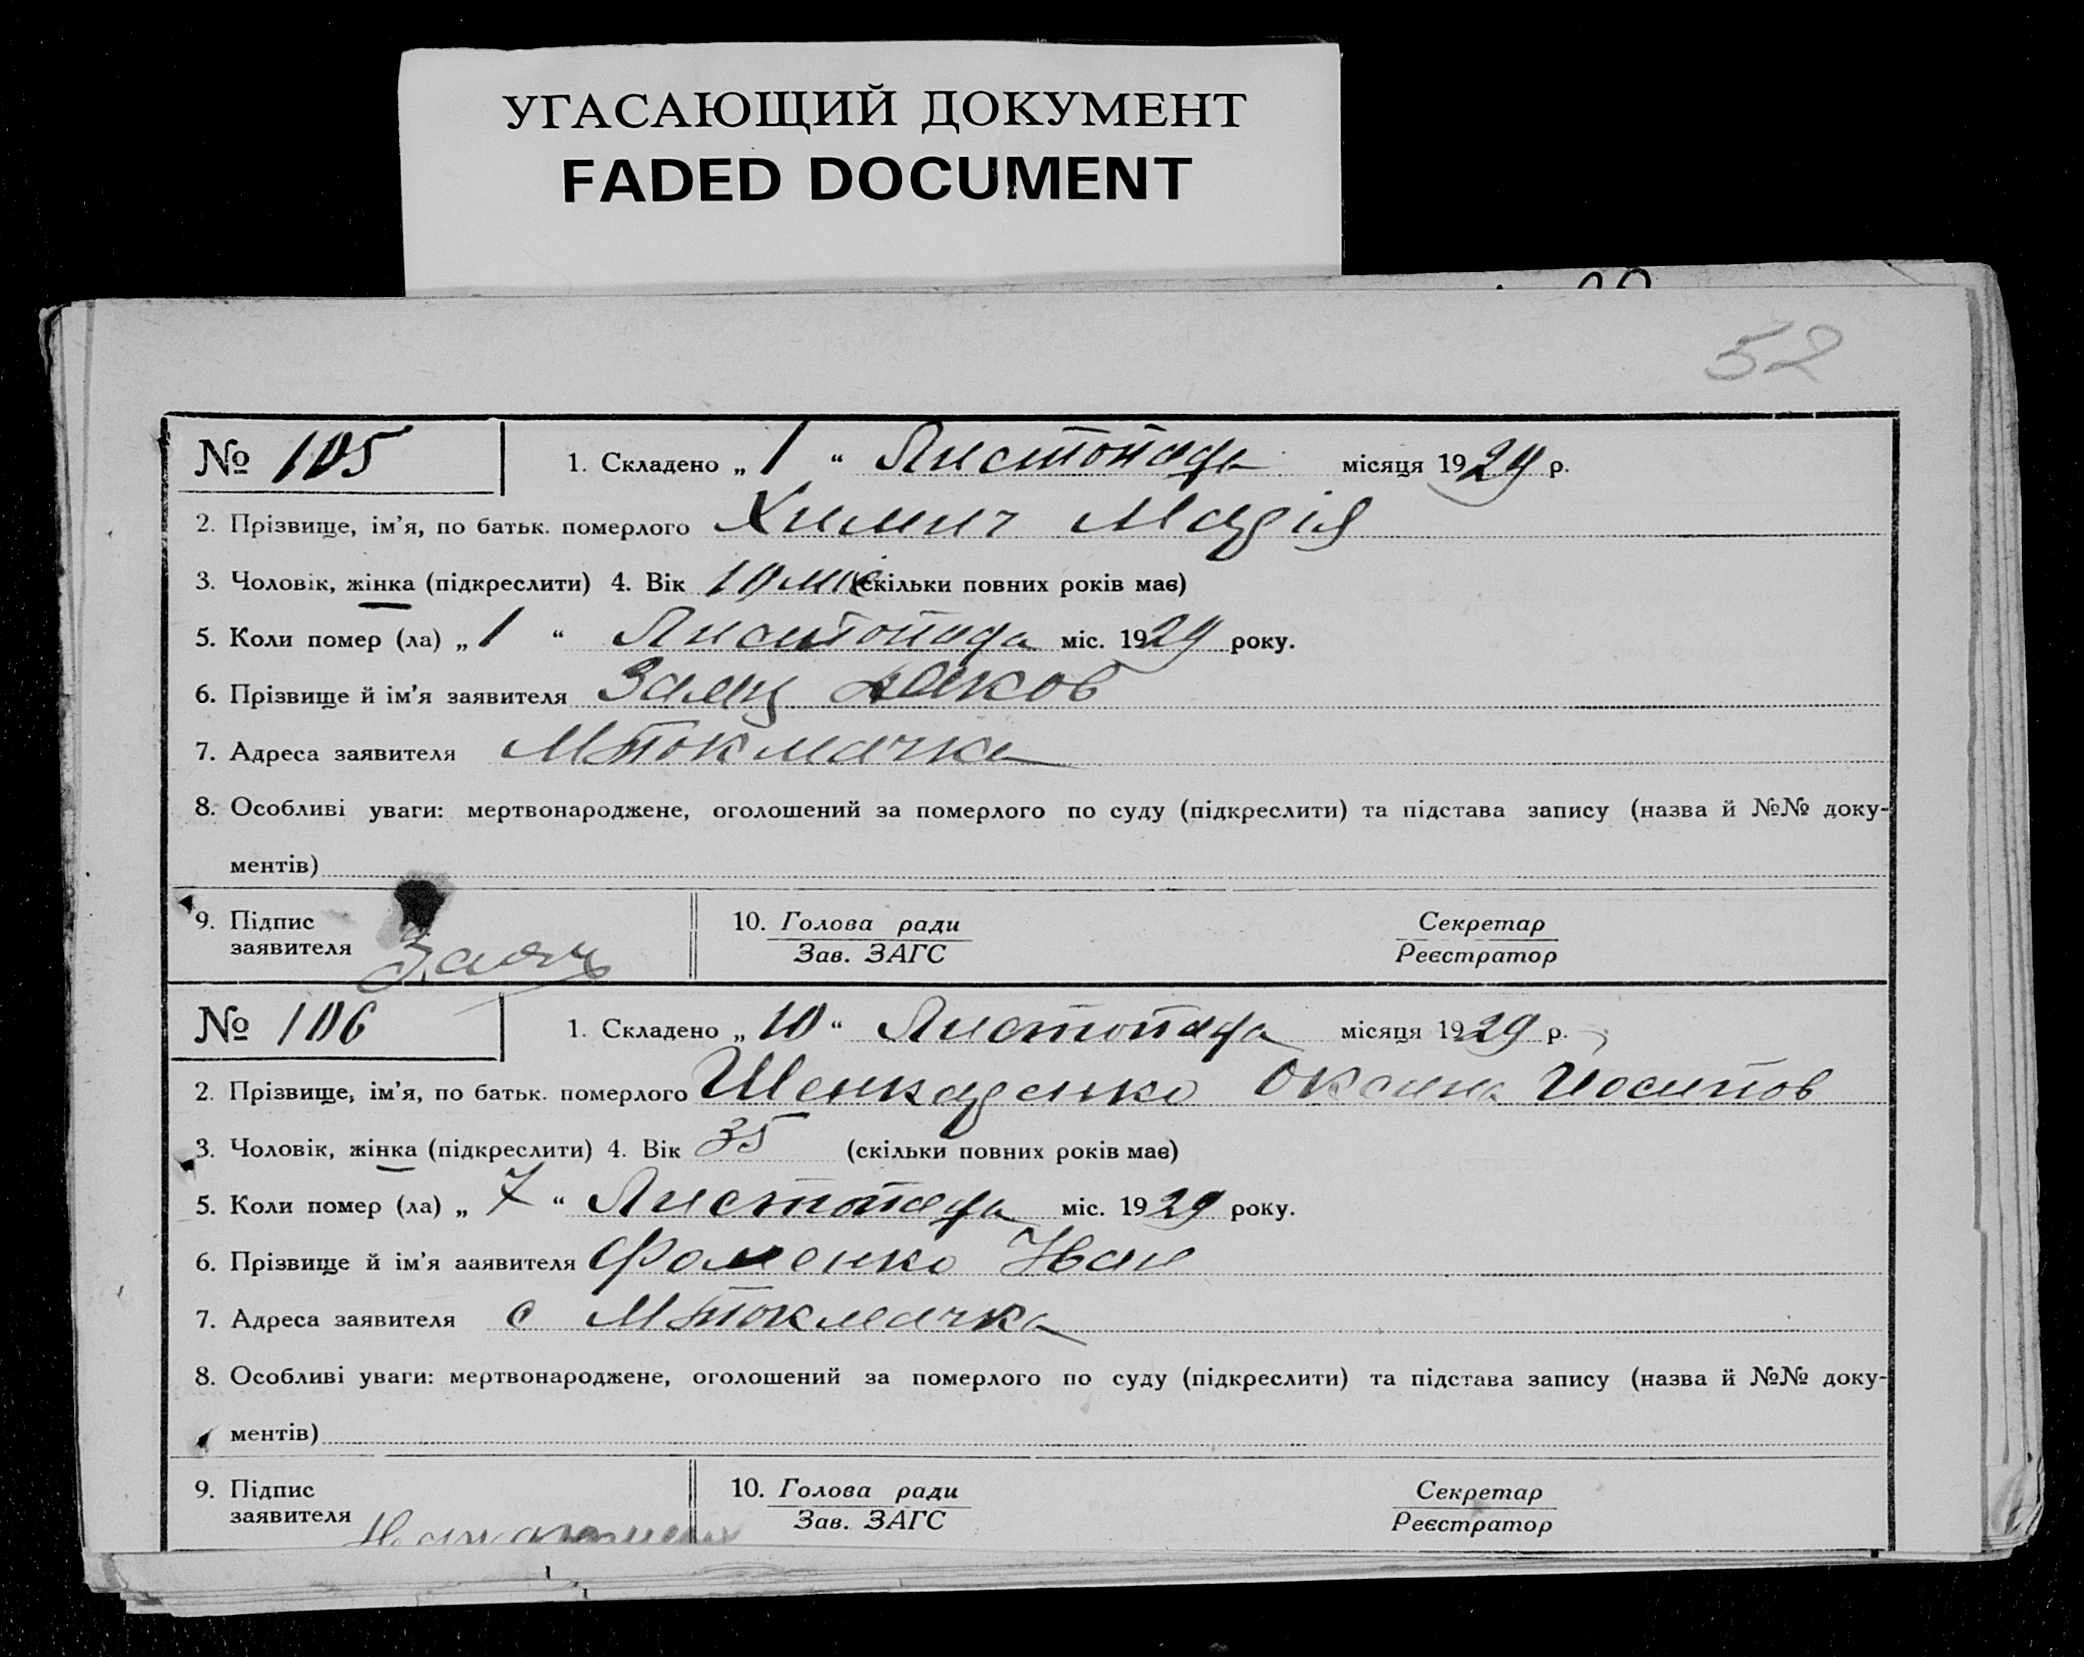 УГАСАЮЩИЙ ДОКУМЕНТ
FADED DOCUMENT
52
№ 105 1. Складено „ 1 “ Листопада місяця 1929 р.
2. Прізвище, ім’я, по батьк. померлого Химич Марія
3. Чоловік, жінка (підкреслити) 4. Вік 10 міс (скільки повних років має)
5. Коли помер (ла) „ 1 “ Листопада міс. 1929 року.
6. Прізвище й ім’я заявителя Яков
7. Адреса заявителя МТокмачка
8. Особливі уваги: мертвонароджене, оголошений за померлого по суду (підкреслити) та підстава запису (назва й №№ доку-
ментів)
9. Підпис заявителя
10. Голова ради Секретар
Зав. ЗАГС Реєстратор
№ 106 1. Складено „ 10 “ Листопада місяця 1929 р.
2. Прізвище, ім’я, по батьк. померлого Шенкаренко Оксана Йосипов
3. Чоловік, жінка (підкреслити) 4. Вік 35 (скільки повних років має)
5. Коли помер (ла) „ 7 “ Листопада міс. 1929 року.
6. Прізвище й ім’я ааявителя Фоменко Иван
7. Адреса заявителя с МТокмачка
8. Особливі уваги: мертвонароджене, оголошений за померлого по суду (підкреслити) та підстава запису (назва й №№ доку-
ментів)
9. Підпис заявителя
10. Голова ради Секретар
Зав. ЗАГС Реєстратор